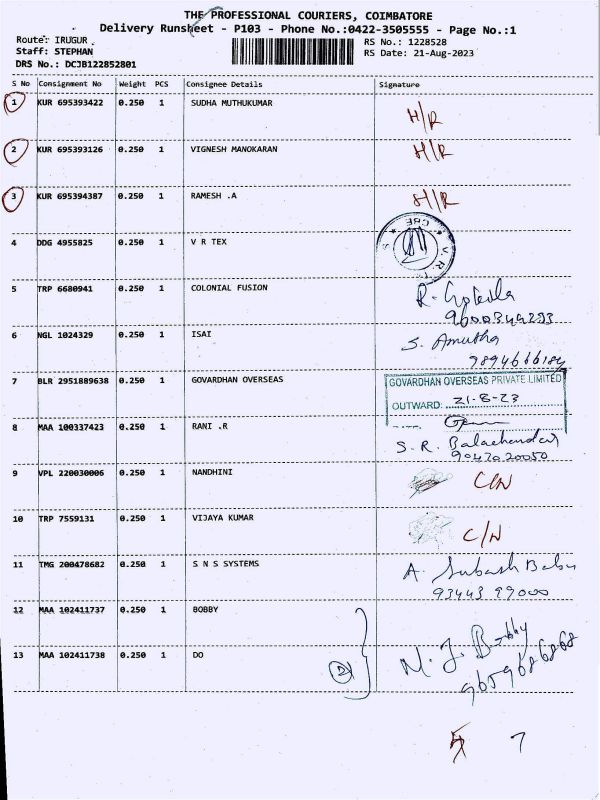 THE PROFESSIONAL COURIERS, COIMBATORE
Delivery Runsheet - P103 - Phone No.:0422-3505555 - Page No.:1
Route: IRUGUR
RS No.: 1228528
Staff: STEPHAN
RS Date: 21-Aug-2023
DRS No.: DCJB122852801
S No Consignment No Weight PCS Consignee Details Signature
1 KUR 695393422 0.250 1 SUDHA MUTHUKUMAR H/R
2 KUR 695393126 0.250 1 VIGNESH MANOKARAN H/R
3 KUR 695394387 0.250 1 RAMESH .A H/R
4 DDG 4955825 0.250 1 V R TEX
5 TRP 6680941 0.250 1 COLONIAL FUSION R.
9600349233
6 NGL 1024329 0.250 1 ISAI S. Amutha
9894666184
7 BLR 2951889638 0.250 1 GOVARDHAN OVERSEAS
GOVARDHAN OVERSEAS PRIVATE LIMITED
OUTWARD: 21-8-23
8 MAA 100337423 0.250 1 RANI .R S. R. Balachandar
9047020050
9 VPL 220030006 0.250 1 NANDHINI C/N
10 TRP 7559131 0.250 1 VIJAYA KUMAR C/N
11 TMG 200478682 0.250 1 S N S SYSTEMS A. Subash Babu
93443 99000
12 MAA 102411737 0.250 1 BOBBY
13 MAA 102411738 0.250 1 DO (2) M. J. Bobby
9659686868
7